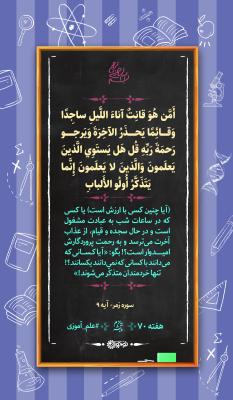 أَمَّن هُوَ قَانِتٌ آنَاءَ اللَّيلِ سَاجِدًا
وَقَائِمًا يَحذَرُ الآخِرَةَ وَيَرجو
رَحمَةَ رَبِّهِ قُل هَل يَستَوِي الَّذينَ
يَعلَمونَ وَالَّذينَ لا يَعلَمونَ إِنَّما
يَتَذَكَّرُ أُولُو الأَلبابِ
(آیا چنین کسی با ارزش است) یا کسی
که در ساعات شب به عبادت مشغول
است و در حال سجده و قیام، از عذاب
آخرت می‌ترسد و به رحمت پروردگارش
امیدوار است؟! بگو: «آیا کسانی که
می‌دانند با کسانی که نمی‌دانند یکسانند؟!
تنها خردمندان متذکّر می‌شوند!»
سوره زمر- آیه ۹
هفته ۷۰
#علم_آموزی